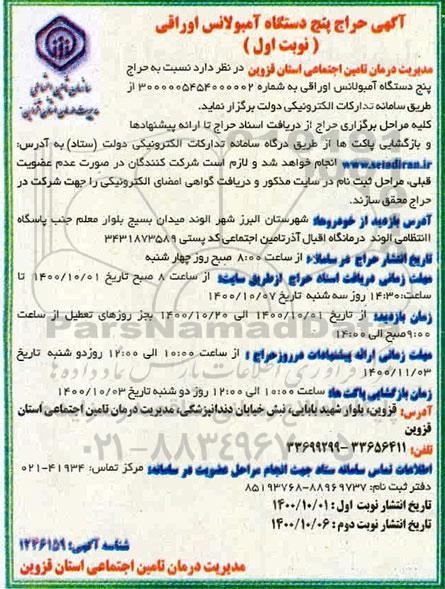 آگهی حراج پنج دستگاه آمبولانس اوراقی
( نوبت اول )
سازمان تأمین اجتماعی
مدیریت درمان استان قزوین
مدیریت درمان تامین اجتماعی استان قزوین در نظر دارد نسبت به حراج
پنج دستگاه آمبولانس اوراقی به شماره ۳۰۰۰۰۰۵۴۵۴۰۰۰۰۰۲ از
طریق سامانه تدارکات الکترونیکی دولت برگزار نماید.
کلیه مراحل برگزاری حراج از دریافت اسناد حراج تا ارائه پیشنهادها
و بازگشایی پاکت ها از طریق درگاه سامانه تدارکات الکترونیکی دولت (ستاد) به آدرس:
www.setadiran.ir انجام خواهد شد و لازم است شرکت کنندگان در صورت عدم عضویت
قبلی، مراحل ثبت نام در سایت مذکور و دریافت گواهی امضای الکترونیکی را جهت شرکت در
حراج محقق سازند.
آدرس بازدید از خودروها: شهرستان البرز شهر الوند میدان بسیج بلوار معلم جنب پاسگاه
انتظامی الوند درمانگاه اقبال آذر تامین اجتماعی کد پستی ۳۴۳۱۸۷۳۵۸۹
تاریخ انتشار حراج در سامانه: از ساعت ۸:۰۰ صبح روز چهار شنبه
مهلت زمانی دریافت اسناد حراج ازطریق سایت: از ساعت ۸ صبح تاریخ ۱۴۰۰/۱۰/۰۱ تا
ساعت:۱۴:۳۰ روز سه شنبه تاریخ ۱۴۰۰/۱۰/۰۷
زمان بازدید: از تاریخ ۱۴۰۰/۱۰/۰۱ الی ۱۴۰۰/۱۰/۲۰ بجز روزهای تعطیل از ساعت
۹:۰۰صبح الی ۱۴:۰۰
مهلت زمانی ارائه پیشنهادات درروزحراج : از ساعت ۱۰:۰۰ الی ۱۲:۰۰ روزدو شنبه تاریخ
۱۴۰۰/۱۱/۰۳
زمان بازگشایی پاکت ها: ساعت ۱۰:۰۰ الی ۱۲:۰۰ روز دو شنبه تاریخ ۱۴۰۰/۱۰/۰۳
آدرس: قزوین، بلوار شهید بابایی، نبش خیابان دندانپزشکی، مدیریت درمان تامین اجتماعی استان
قزوین
تلفن: ۳۳۶۵۶۴۱۱ -۳۳۶۹۹۲۹۹
اطلاعات تماس سامانه ستاد جهت انجام مراحل عضویت در سامانه: مرکز تماس: ۴۱۹۳۴-۰۲۱
دفتر ثبت نام: ۸۸۹۶۹۷۳۷-۸۵۱۹۳۷۶۸
تاریخ انتشار نوبت اول : ۱۴۰۰/۱۰/۰۱
تاریخ انتشار نوبت دوم : ۱۴۰۰/۱۰/۰۶
شناسه آگهی: ۱۲۴۶۱۵۹
مدیریت درمان تامین اجتماعی استان قزوین
ParsNamadData
۰۲۱-۸۸۳۴۹۶۷۰